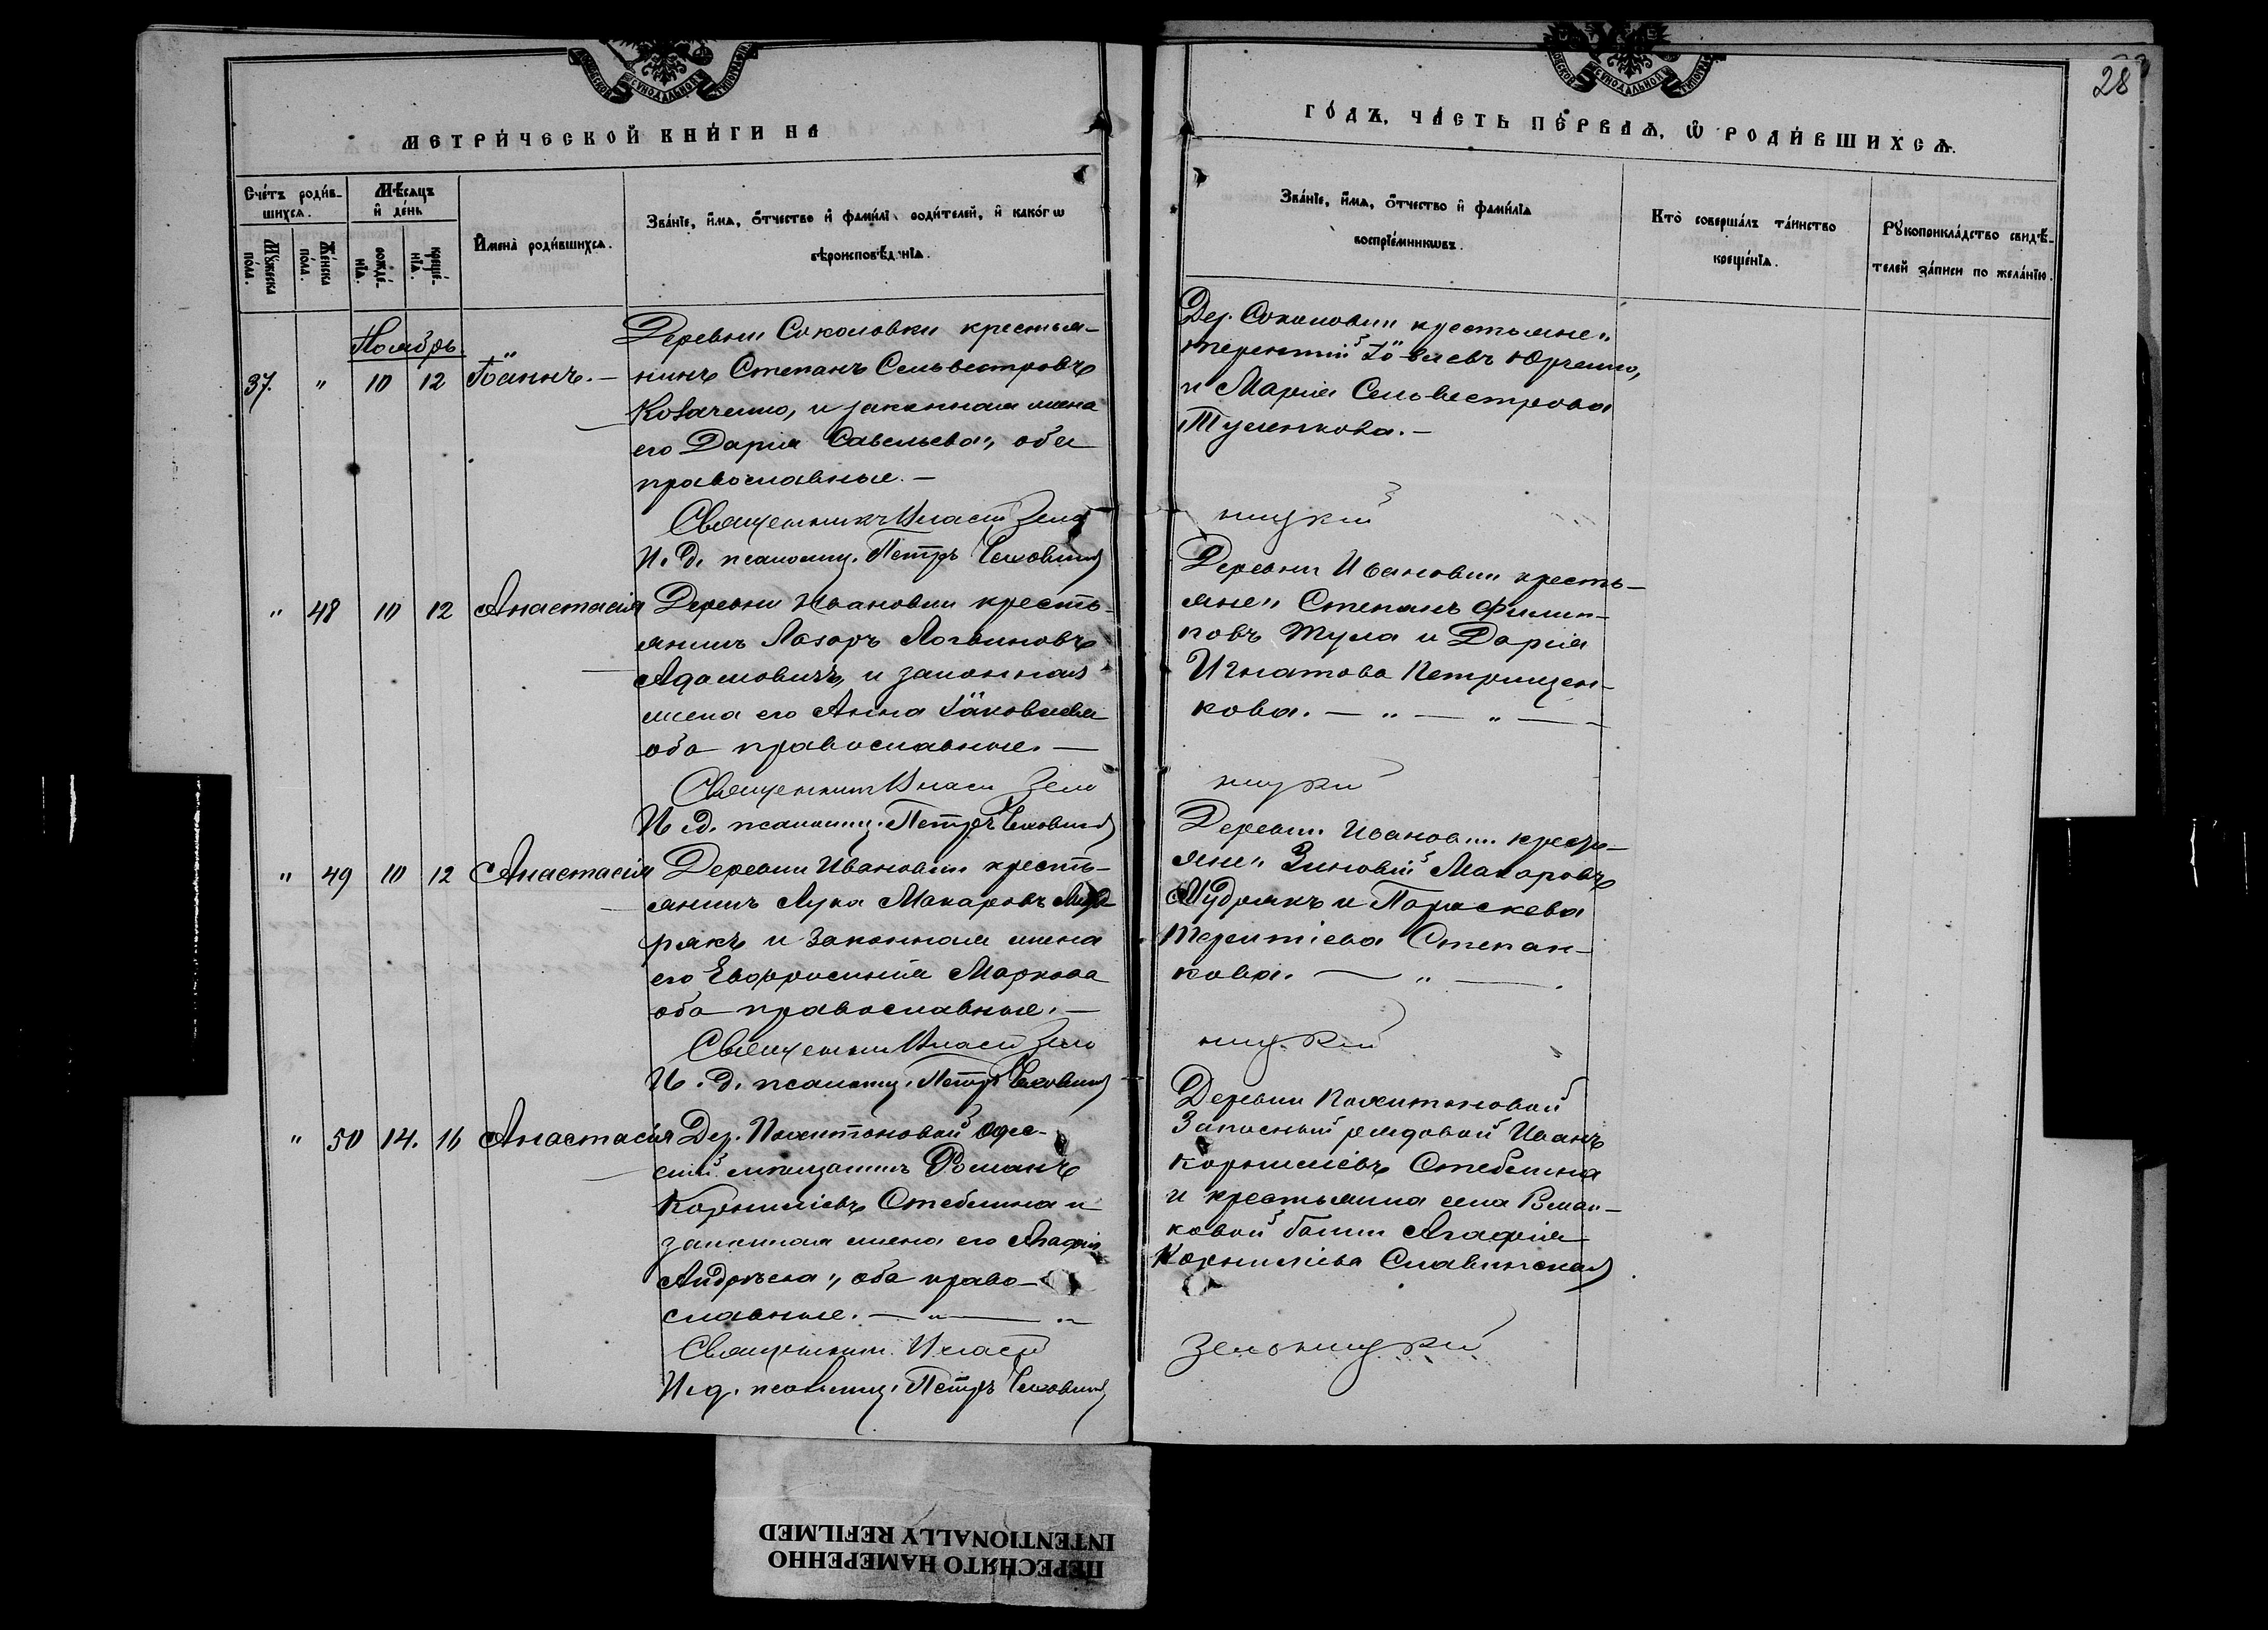 28
МЕТРИ́ЧЕСКОЙ КНИ́ГИ НА
ГО́ДЪ, ЧА́СТЬ ПЕ́РВАѦ, Ѡ҆ РОДИ́ВШИХСѦ.
Сче́тъ роди́в-
шихсѧ.
Мѣ́сѧцъ
и҆ де́нь
Мꙋ́жеска
по́ла.
Же́нска
по́ла.
рожде́-
нїѧ.
креще́-
нїѧ.
И҆мена̀ роди́вшихсѧ.
Зва́нїе, и҆́мѧ, о҆́тчество и҆ фами́лїѧ роди́телей, и҆ како́гѡ
вѣроисповѣ́данїѧ.
Зва́нїе, и҆́мѧ, о҆́тчество и҆ фами́лїѧ
воспрїе́мникѡвъ.
Кто̀ соверша́лъ та́инство
креще́нїѧ.
Рꙋкоприкла́дство свидѣ́-
телей за́писи по жела́нїю.
Ноябрь
37. " 10 12 Іоаннъ. —
Деревни Соколовки крестья-
нинъ Степанъ Сельвестровъ
Коваченко, и законная жена
его Дарія Савельева, оба
православные. —
Священникъ Зель
И. д. псаломщ. Петръ
Дер. Соколовки крестьяне
Терентій Іовлевъ Юрченко,
и Марія Сельвестрова
Туленкова. —
ницкій
" 48 10 12 Анастасія
Деревни Ивановки кресть-
янинъ Лазарь Логвиновъ
Адамовичъ, и законная
жена его Анна Іаковлева
оба православные. —
Священникъ Зель
И. д. псаломщ. Петръ
Деревни Ивановки кресть-
яне Степанъ Филип-
повъ Тула и Дарія
Игнатова Петрищен-
кова. — " — " —
ницкій
" 49 10 12 Анастасія
Деревни Ивановки кресть-
янинъ Лука Макаровъ Муд-
рякъ и законная жена
его Евфросинія Маркова
оба православные. —
Священникъ Зель
И. д. псаломщ. Петръ
Деревни Ивановки кресть-
яне Зиновій Макаровъ
Мудрякъ и Параскева
Терентіева Степан-
кова. — " —
ницкій
" 50 14. 16 Анастасія
Дер. Похитоновой Одес-
скій мѣщанинъ Романъ
Корниліевъ Стеблина и
законная жена его Агафія
Андреева, оба право-
славные. — " — "
Священникъ
И. д. псаломщ. Петръ
Деревни Похитоновой
Запасный рядовой Иванъ
Корниліевъ Стеблина
и крестьянка села Роман-
ковой балки Агафія
Корниліева Славинская
Зельницкій
ПЕРЕСНЯТО НАМЕРЕННО
INTENTIONALLY REFILMED